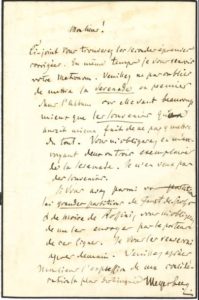 Monsieur!
Ci-joint vous trouverez les secondes épreuves
corrigées. En même temps je vous renvoie
votre Metronom. Veuillez ne pas oublier
de mettre la Serenade en premier
dans l'Album car elle vaut beaucoup
mieux que les souvenirs qu'on
aurait mieux fait de ne pas y mettre
du tout. Vous m'obligerez en m'en-
voyant deux ou trois exemplaires
de la Serenade. Je n'en veux pas
des souvenirs.
Si vous avez parmi vos
les grandes partitions de
et de Moïse de Rossini, vous m'obligerez
de me les envoyer par le porteur
de ces lignes. Je vous les renverrai
après demain. Veuillez agréer
Monsieur l'expression de ma considé-
ration la plus distinguée Meyerbeer